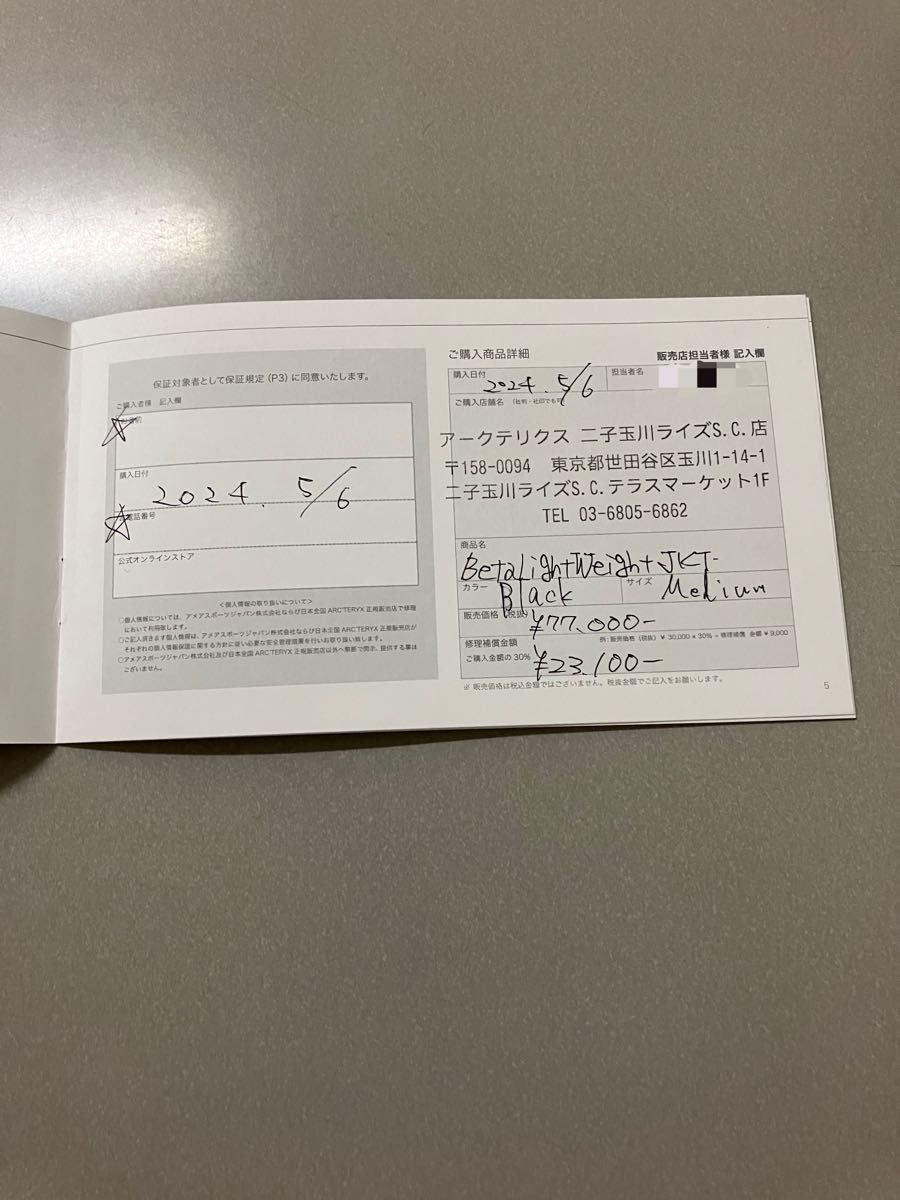 保証対象者として保証規定（P3）に同意いたします。
ご購入者様 記入欄
お名前
購入日付
2024. 5/6
お電話番号
公式オンラインストア
＜個人情報の取り扱いについて＞
○個人情報については、アメアスポーツジャパン株式会社ならび日本全国 ARC'TERYX 正規販売店で修理
において利用致します。
○ご記入頂きます個人情報は、アメアスポーツジャパン株式会社ならび日本全国 ARC'TERYX 正規販売店が
それぞれの個人情報保護に関する方針に従い必要な安全管理措置を行いお取り扱い致します。
○アメアスポーツジャパン株式会社及び日本全国 ARC'TERYX 正規販売店以外へ無断で開示、提供する事は
ございません。
ご購入商品詳細
販売店担当者様 記入欄
購入日付
2024. 5/6
担当者名
ご購入店舗名 （社判・社印でも可）
アークテリクス 二子玉川ライズS.C.店
〒158-0094 東京都世田谷区玉川1-14-1
二子玉川ライズS.C.テラスマーケット1F
TEL 03-6805-6862
商品名
BetaLightWeight JKT-
カラー Black
サイズ Medium
販売価格（税抜） ¥77.000-
修理補償金額
例：販売価格（税抜） ¥ 30,000 × 30% = 修理補償 金額 ¥ 9,000
ご購入金額の30% ¥23.100-
※ 販売価格は税込金額ではございません。税抜金額でご記入をお願いします。
5